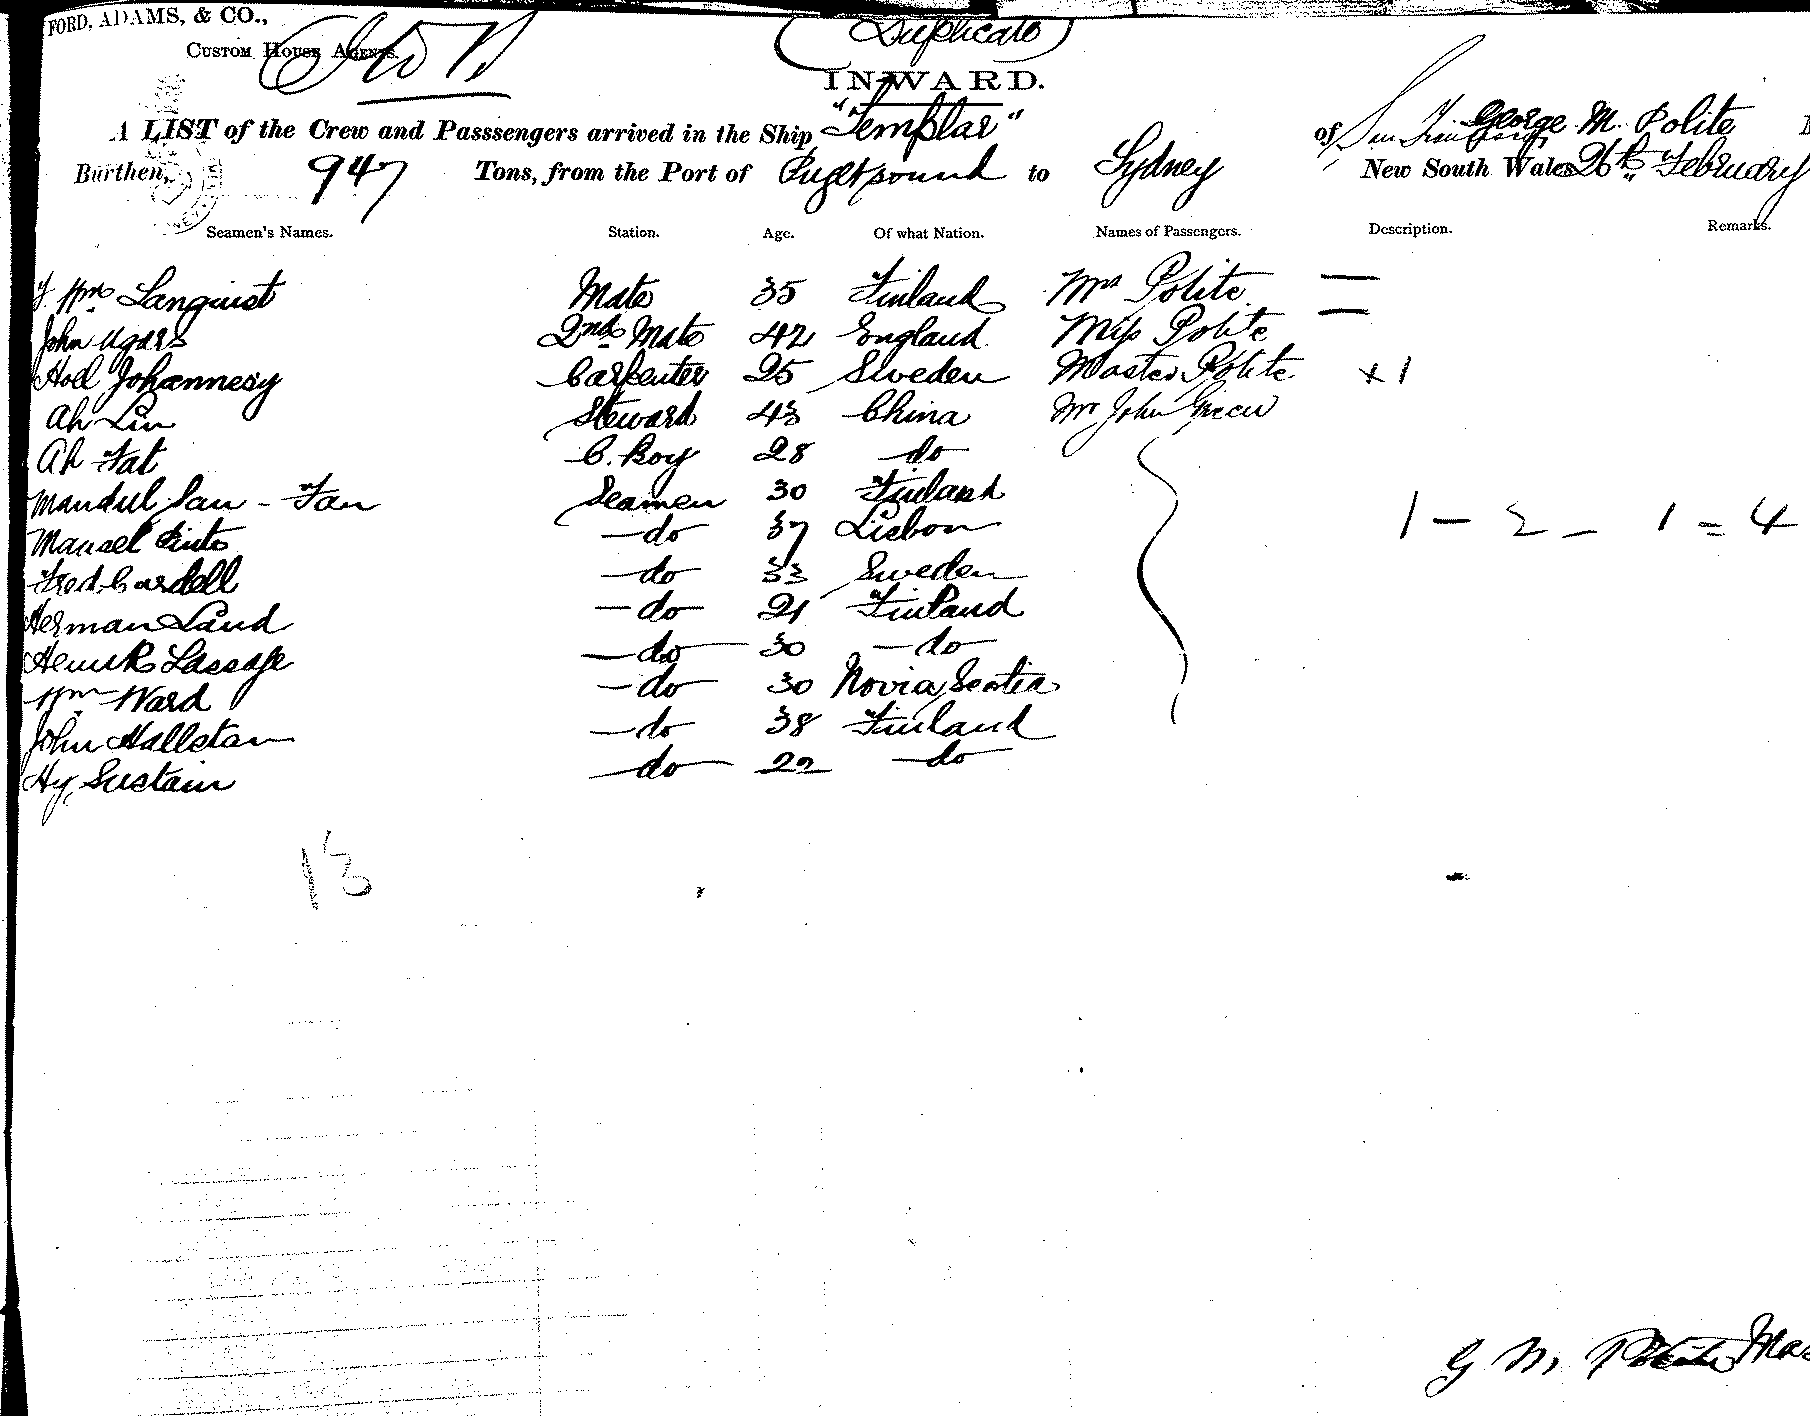 FORD, ADAMS, & CO.,
CUSTOM HOUSE AGENTS.
(Duplicate)
INWARD.
A LIST of the Crew and Passsengers arrived in the Ship "Templar" of San Francisco George M. Polite
Burthen, 947 Tons, from the Port of Puget sound to Sydney New South Wales 26th February
Seamen's Names. Station. Age. Of what Nation. Names of Passengers. Description. Remarks.
Wm Lanquist Mate 35 Finland Mrs Polite —
John Ugars 2nd Mate 42 England Miss Polite —
Johannesy Carpenter 25 Sweden Master Polite x 1
Ah Lin Steward 43 China Mr John Green
Ah Fat C. Boy 28 do
Seamen 30 Finland
Manuel Pinto —do 37 Lisbon
1 - 2 - 1 = 4
Fred Cardell —do 33 Sweden
Herman Land —do 21 Finland
—do— 30 —do
Wm Ward —do 30 Novia Scotia
John Hallstan —do 38 Finland
Hy Sustain —do— 22 —do
13
G M. Polite Mas